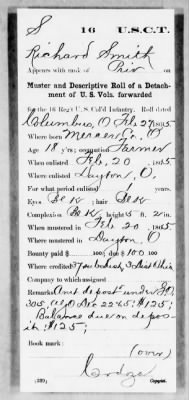 S 16 U.S.C.T.
Richard Smith
Appears with rank of Priv on
Muster and Descriptive Roll of a Detach-
ment of U. S. Vols. forwarded
for the 16 Reg't U. S. Col'd Infantry. Roll dated
Columbus, O. Feb 27, 1865
Where born Mercer Co., O
Age 18 y'rs; occupation Farmer
When enlisted Feb. 20, 1865
Where enlisted Dayton, O.
For what period enlisted 1 years.
Eyes Blk; hair Blk
Complexion Blk; height 5 ft. 2 in.
When mustered in Feb 20, 1865
Where mustered in Dayton, O
Bounty paid $ 100; due $ 100
Where credited
Ohio
Company to which assigned
Remarks: Amt deposit under G.O.
305 Dec 22 65; $125;
Balance due on depos-
it $125;
Book mark:
(over)
(339)
Copyist.